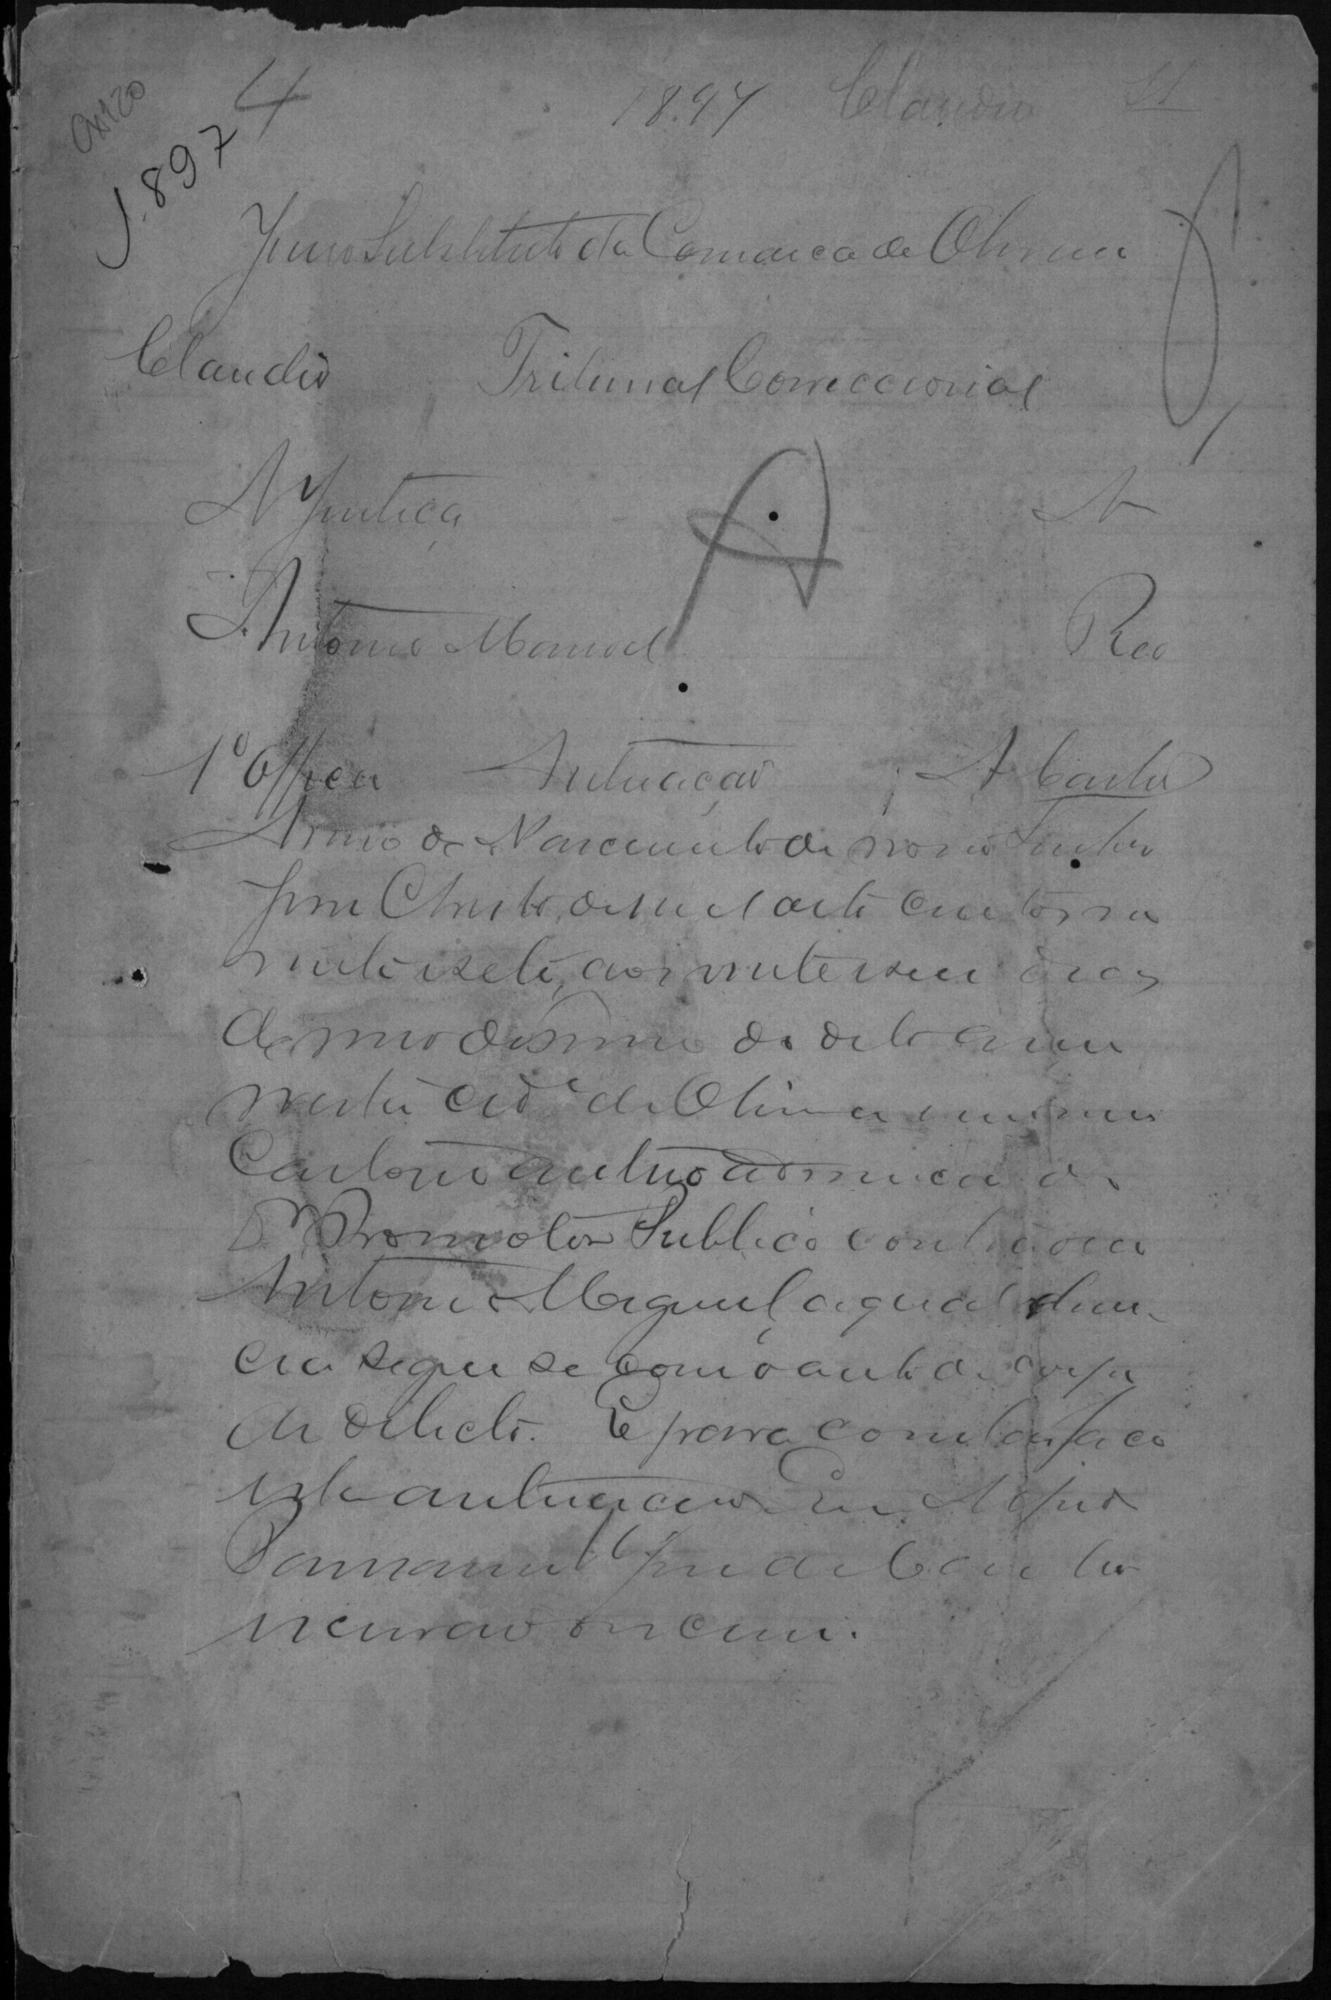 4 1897 Claudio
1.897
Juizo Substituto da Comarca de Oliveira
Claudio Tribunal Correccional
A Justiça A
Antonio Manoel Reo
1º Officio Autuação A Costa
Anno do Nascimento de Nosso Senhor
Jesus Christo de mil oito centos no
venta e sete, aos vinte e seis dias
do mez de do dito anno
nesta cidᵉ de Oliveira em meu
Cartorio autuo a denuncia do
Dʳ Promotor Publico contra o reo
Antonio Miguel, a qual denun
cia segue se com o auto de corpo
de delicto. E para constar faço
esta autuação. Eu,
de
escrivão escrevi.